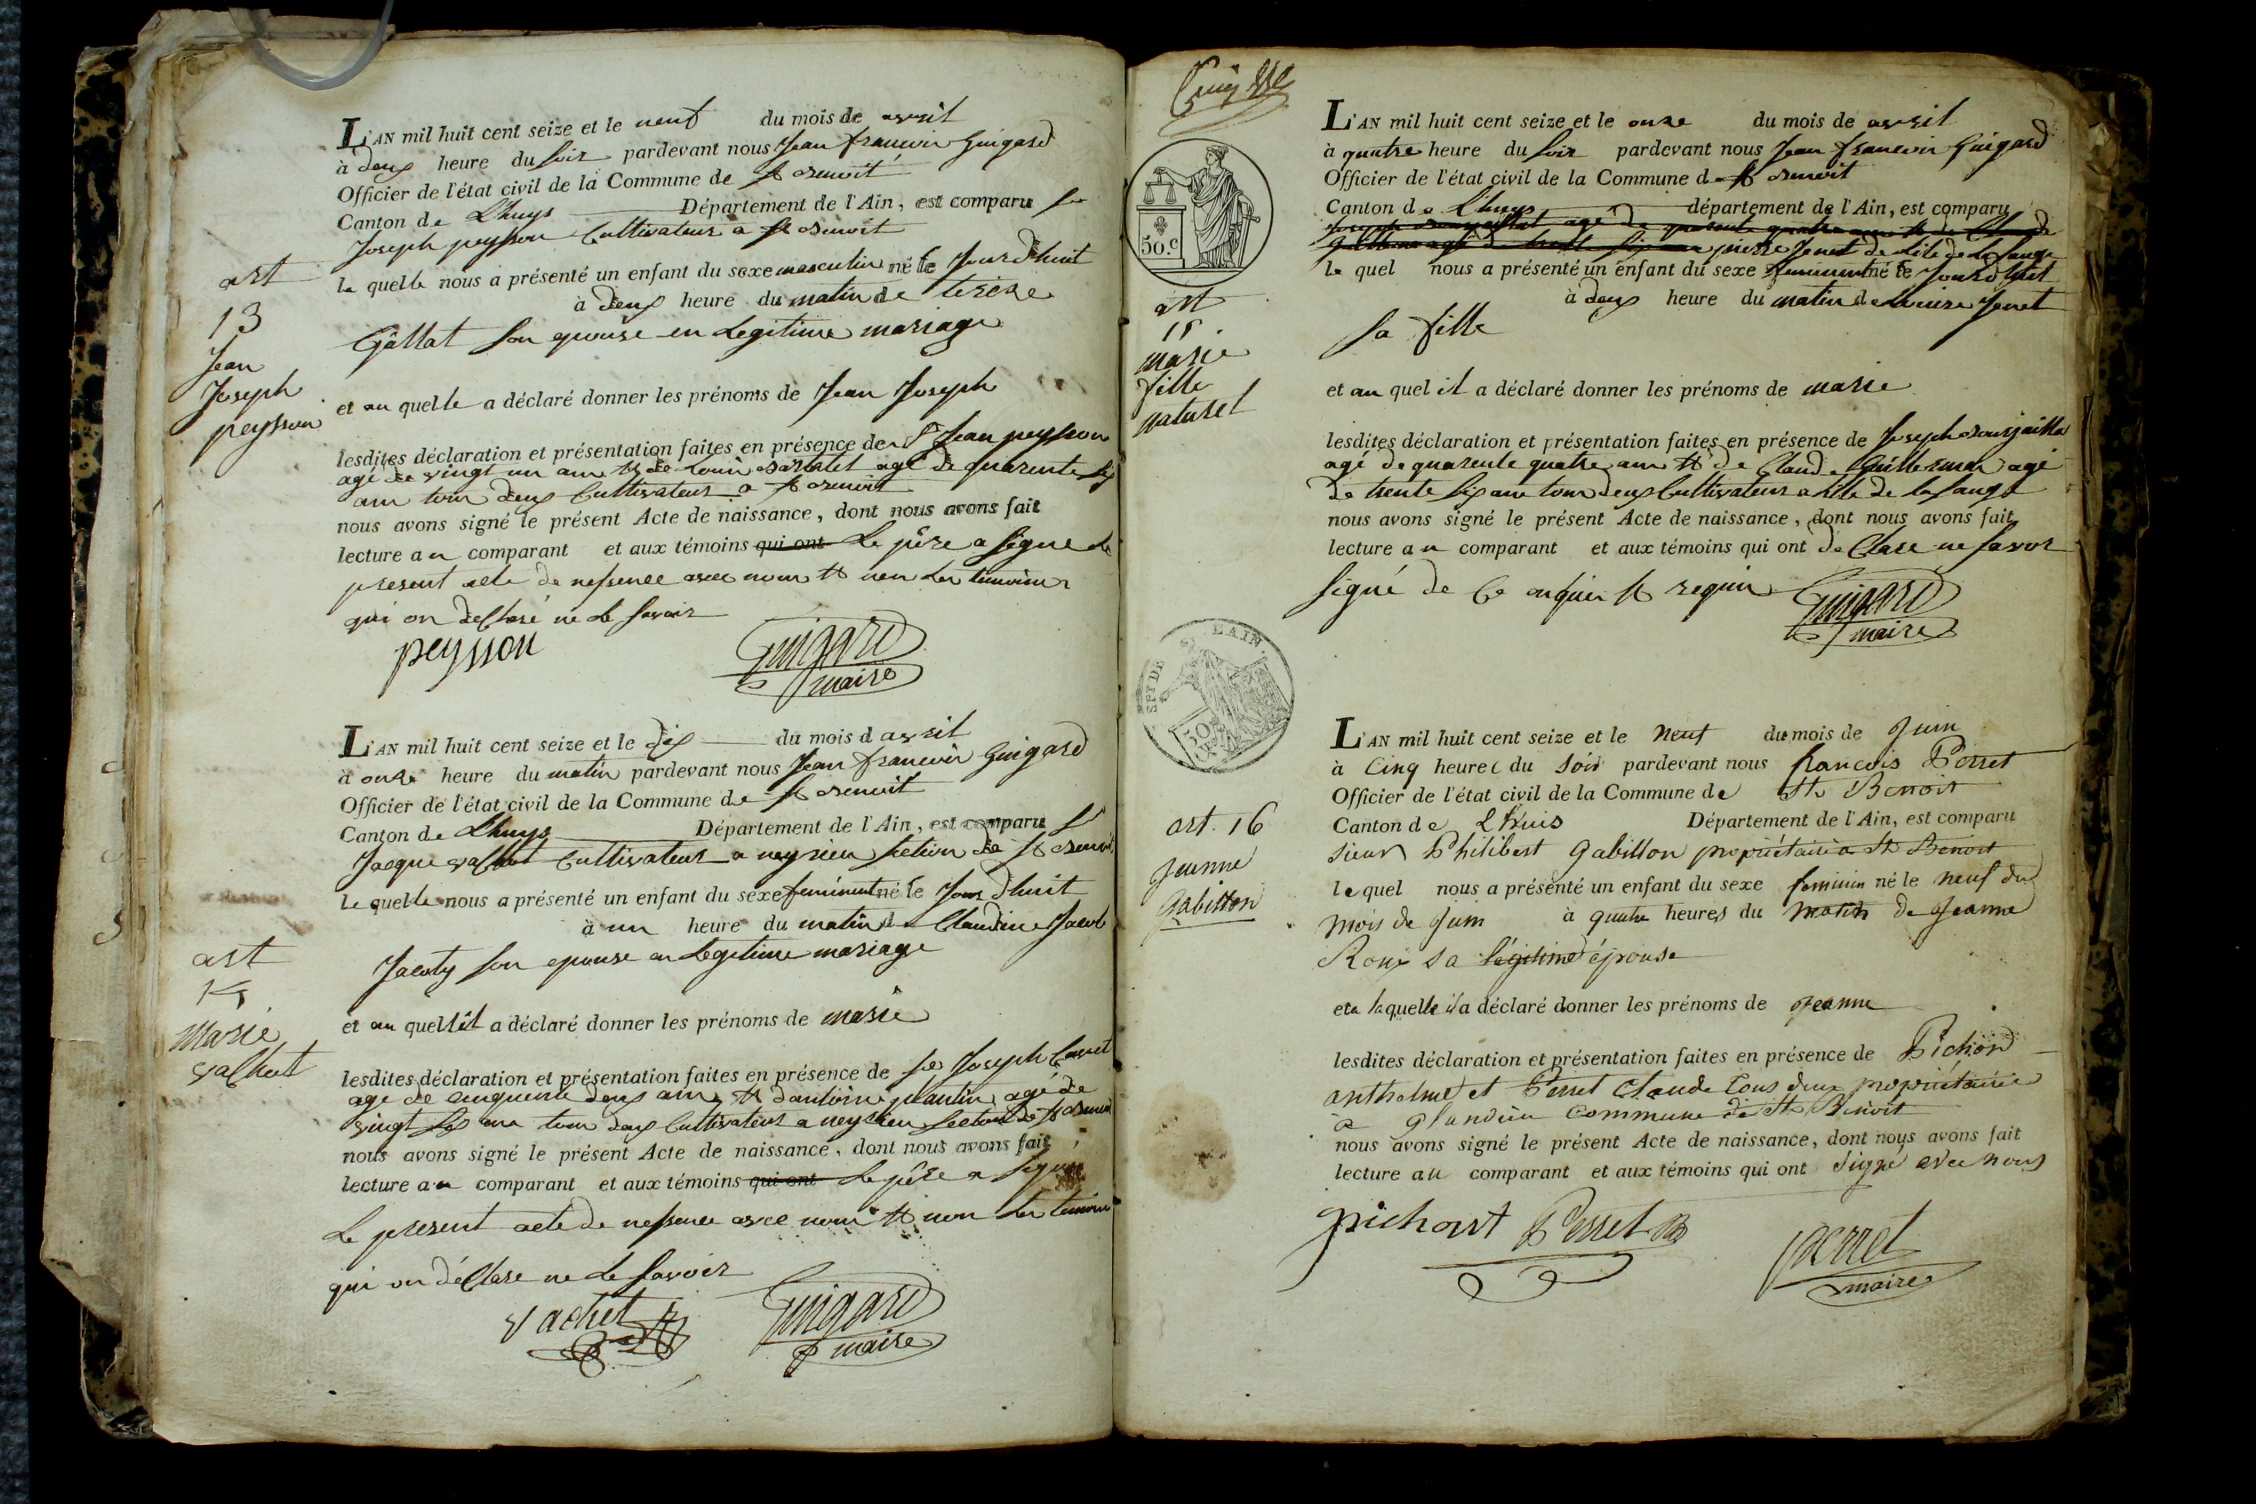 art
13
Jean
Joseph
peysson
L'AN mil huit cent seize et le neuf du mois de avril
à deux heure du soir pardevant nous Jean francois Guigard
Officier de l'état civil de la Commune de St Benoit
Canton de Lhuys Département de l'Ain, est comparu
Joseph peysson Cultivateur a St Benoit
le quelle nous a présenté un enfant du sexe masculin né le Jourdhuit
à deux heure du matin de
Gallat son epouse en Legitime mariage
et au quelle a déclaré donner les prénoms de Jean Joseph
lesdites déclaration et présentation faites en présence de Sr Jean peysson
agé de vingt un ans et de Louis agé de quarente six
ans tous deux Cultivateur a St Benoit
nous avons signé le présent Acte de naissance, dont nous avons fait
lecture au comparant et aux témoins qui ont Le père a signé le
present acte de nessence avec nous et non Les temoins
qui on declaré ne le savoir
peysson
Guigard
maire
art
14
Marie
vachet
L'AN mil huit cent seize et le dix du mois d avril
à onze heure du matin pardevant nous Jean francois Guigard
Officier de l'état civil de la Commune de St Benoit
Canton de Lhuys Département de l'Ain, est comparu Sr
Jacque vachet Cultivateur a neyrieu section de St Benoit
le quelle nous a présenté un enfant du sexe feminint né le Jour dhuit
à un heure du matin d Claudine Jacob
Jacoty son epouse en Legitime mariage
et au quellêt a déclaré donner les prénoms de marie
lesdites déclaration et présentation faites en présence de Joseph
agé de cinquente deux ans et dantoine plantin agé de
vingt six ans tous deux Cultivateur a neyrieu section de St Benoit
nous avons signé le présent Acte de naissance, dont nous avons fait
lecture au comparant et aux témoins qui ont Le père a signé
Le present acte de nessence avec nous et non Les temoins
qui on déclare ne Le savoir
vachet
Guigard
maire
50.c
art
15.
marie
fille
naturel
L'AN mil huit cent seize et le onze du mois de avril
à quatre heure du soir pardevant nous Jean francois Guigard
Officier de l'état civil de la Commune d St Benoit
Canton de Lhuys département de l'Ain, est comparu
pierre Jenet de Lile de La Sauge
le quel nous a présenté un enfant du sexe feminint né le Jourdhuit
à deux heure du matin de Jenet
sa fille
et au quel il a déclaré donner les prénoms de marie
lesdites déclaration et présentation faites en présence de Joseph
agé de quarente quatre ans et de Claude Guillerman agé
de trente six ans tous deux Cultivateur a Lille de la Sauge
nous avons signé le présent Acte de naissance, dont nous avons fait
lecture au comparant et aux témoins qui ont de Clare ne savoir
signé de Ce enquis et requis
Guigard
maire
art. 16
Jeanne
Gabillon
L'AN mil huit cent seize et le Neuf du mois de Juin
à Cinq heures du Soir pardevant nous francois Perret
Officier de l'état civil de la Commune de St Benoit
Canton de Lhuis Département de l'Ain, est comparu
sieur Philibert Gabillon propriétaire a St Benoit
le quel nous a présenté un enfant du sexe feminin né le neuf du
mois de Juin à quatre heures du Matin de Jeanne
Roux sa légitime épouse
et a laquelle il a déclaré donner les prénoms de Jeanne
lesdites déclaration et présentation faites en présence de Pichon
anthelme et Perret Claude tous deux propriétaires
a glandieu commune de St Benoit
nous avons signé le présent Acte de naissance, dont nous avons fait
lecture au comparant et aux témoins qui ont signé avec nous
pichont Perret
perret
maire